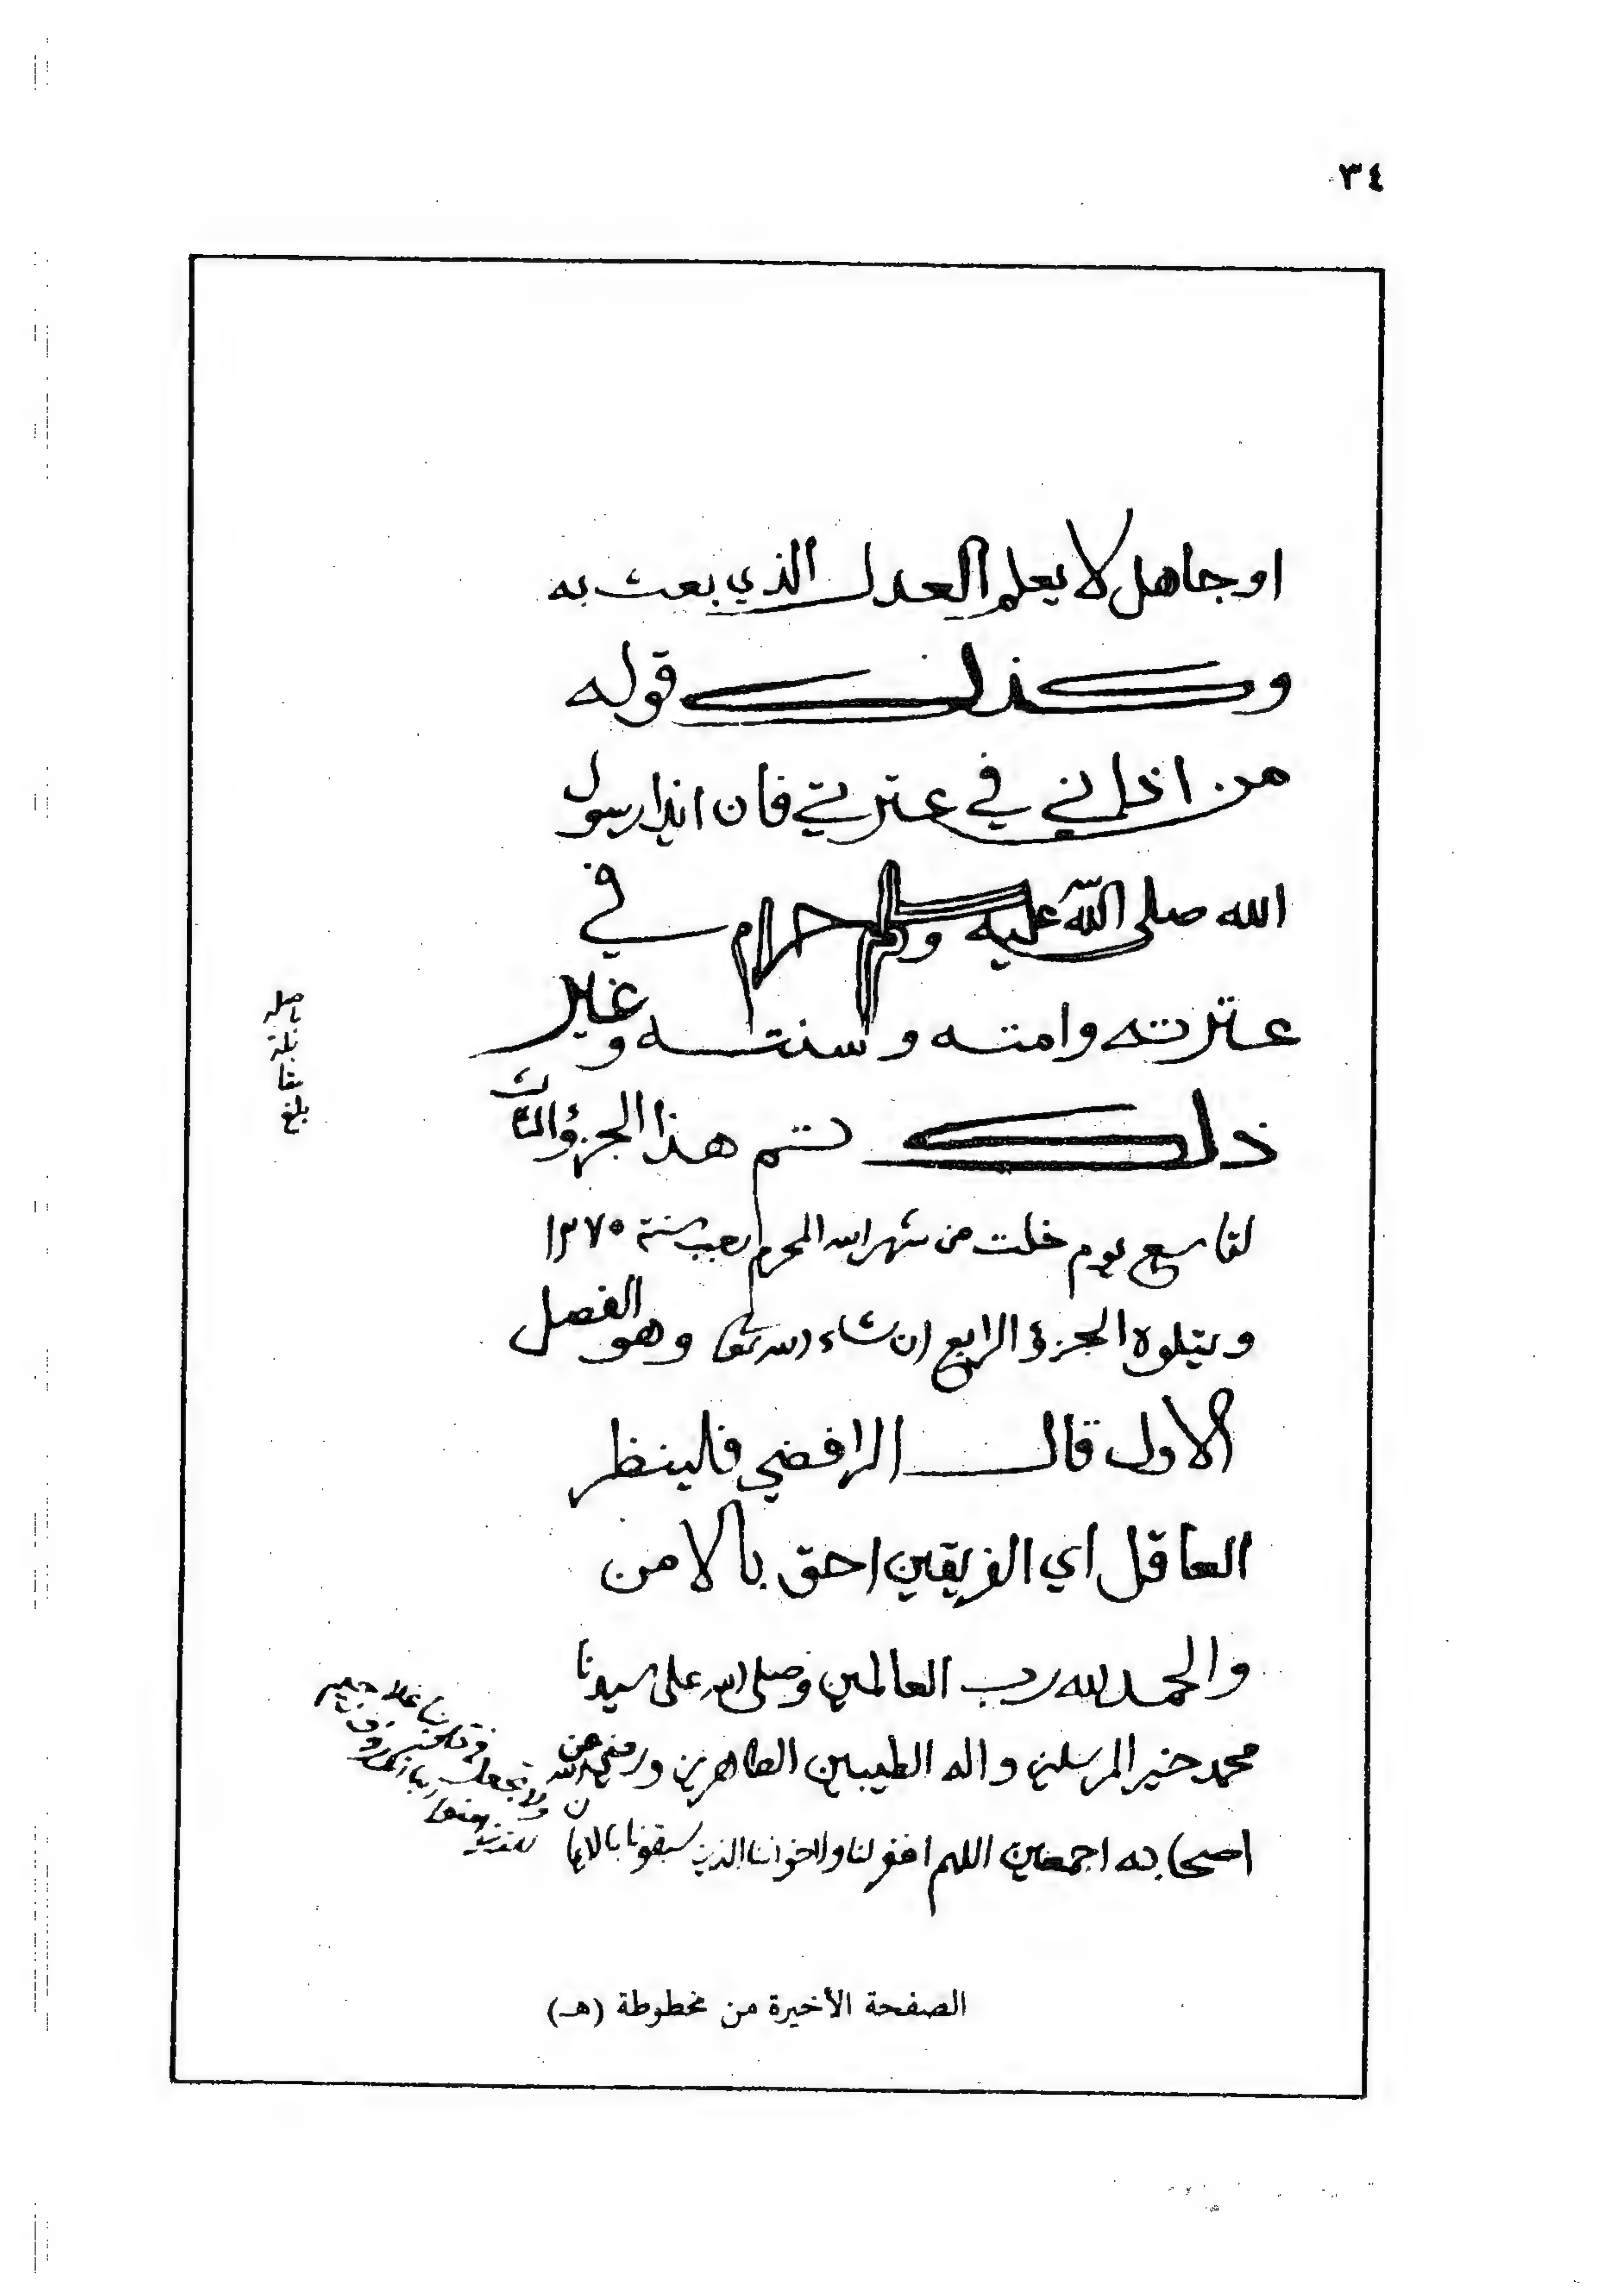 ٣٤
او جاهل لا يعلم العدل الذي بعث به
وكذلك قوله
من اذاني في عترتي فان ايذا رسول
الله صلى الله عليه وسلم حرام في
عترته وامته وسنته وغير
ذلك تم هذا الجزؤ الثالث
لتاسع يوم خلت من شهر الله المحرم سنة ١٢٧٥
ويتلوه الجزؤ الرابع ان شاء الله تعالى وهو الفصل
الاول قال الرافضي فلينظر
العاقل اي الفريقين احق بالامن
والحمد لله رب العالمين وصلى الله على سيدنا
محمد خير المرسلين واله الطيبين الطاهرين ورضي الله عن
اصحابه اجمعين اللهم اغفر لنا ولاخواننا الذين سبقونا بالايمان
ولا تجعل في قلوبنا غلا
للذين امنوا ربنا انك رؤف رحيم
بلغ مقابلة باصله
الصفحة الأخيرة من مخطوطة (هـ)